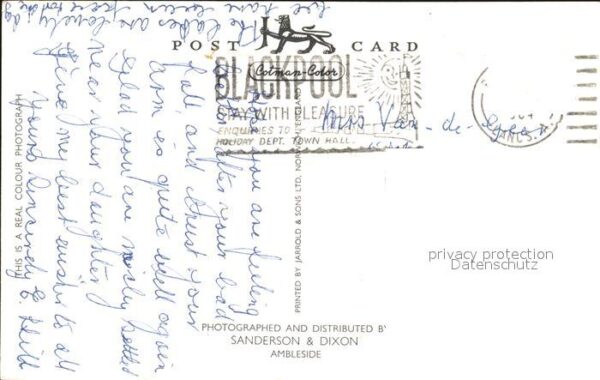 POST CARD
Cotman-Color
BLACKPOOL
STAY WITH PLEASURE
ENQUIRIES TO
HOLIDAY DEPT. TOWN HALL.
Miss Van-de-
you are feeling
better after your bad
fall, and trust your
arm is quite well again
Glad you are nicely settled
near your daughter
Give my best wishes to all
Yours Sincerely E. Hill
The lakes are lovely
We have been
THIS IS A REAL COLOUR PHOTOGRAPH
PRINTED BY JARROLD & SONS LTD. NORWICH, ENGLAND
privacy protection
Datenschutz
PHOTOGRAPHED AND DISTRIBUTED BY
SANDERSON & DIXON
AMBLESIDE